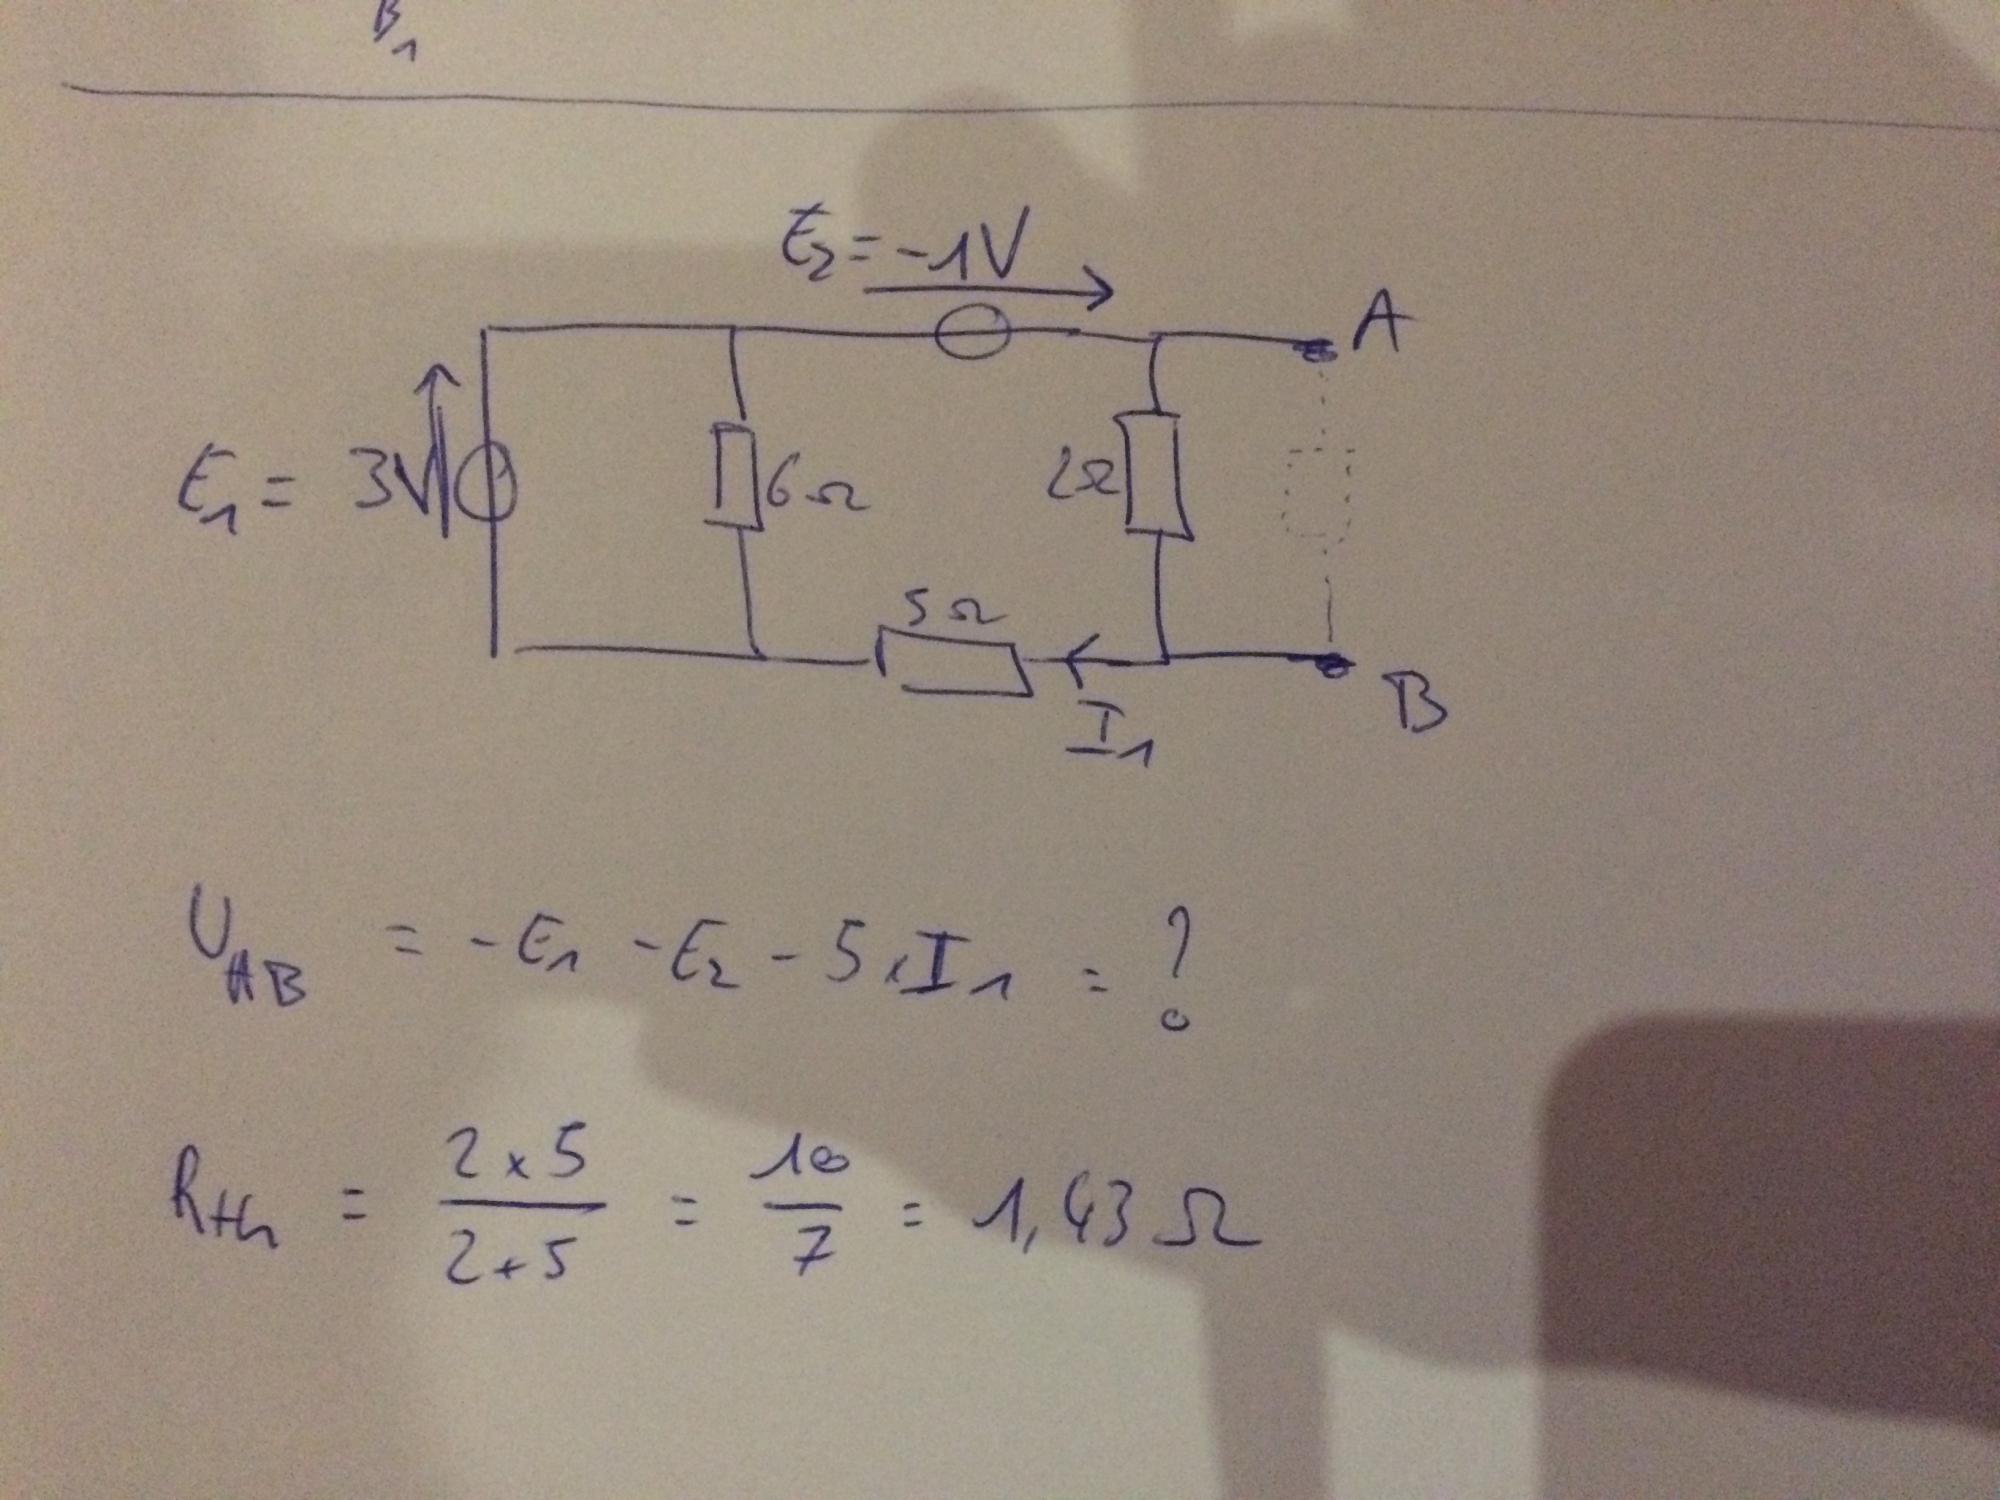 B1
E2 = -1V
A
E1 = 3V
6Ω
2Ω
5Ω
I1
B
UAB = - E1 - E2 - 5 × I1 = ?
Rth = 2 × 5 / 2 + 5 = 10 / 7 = 1,43 Ω